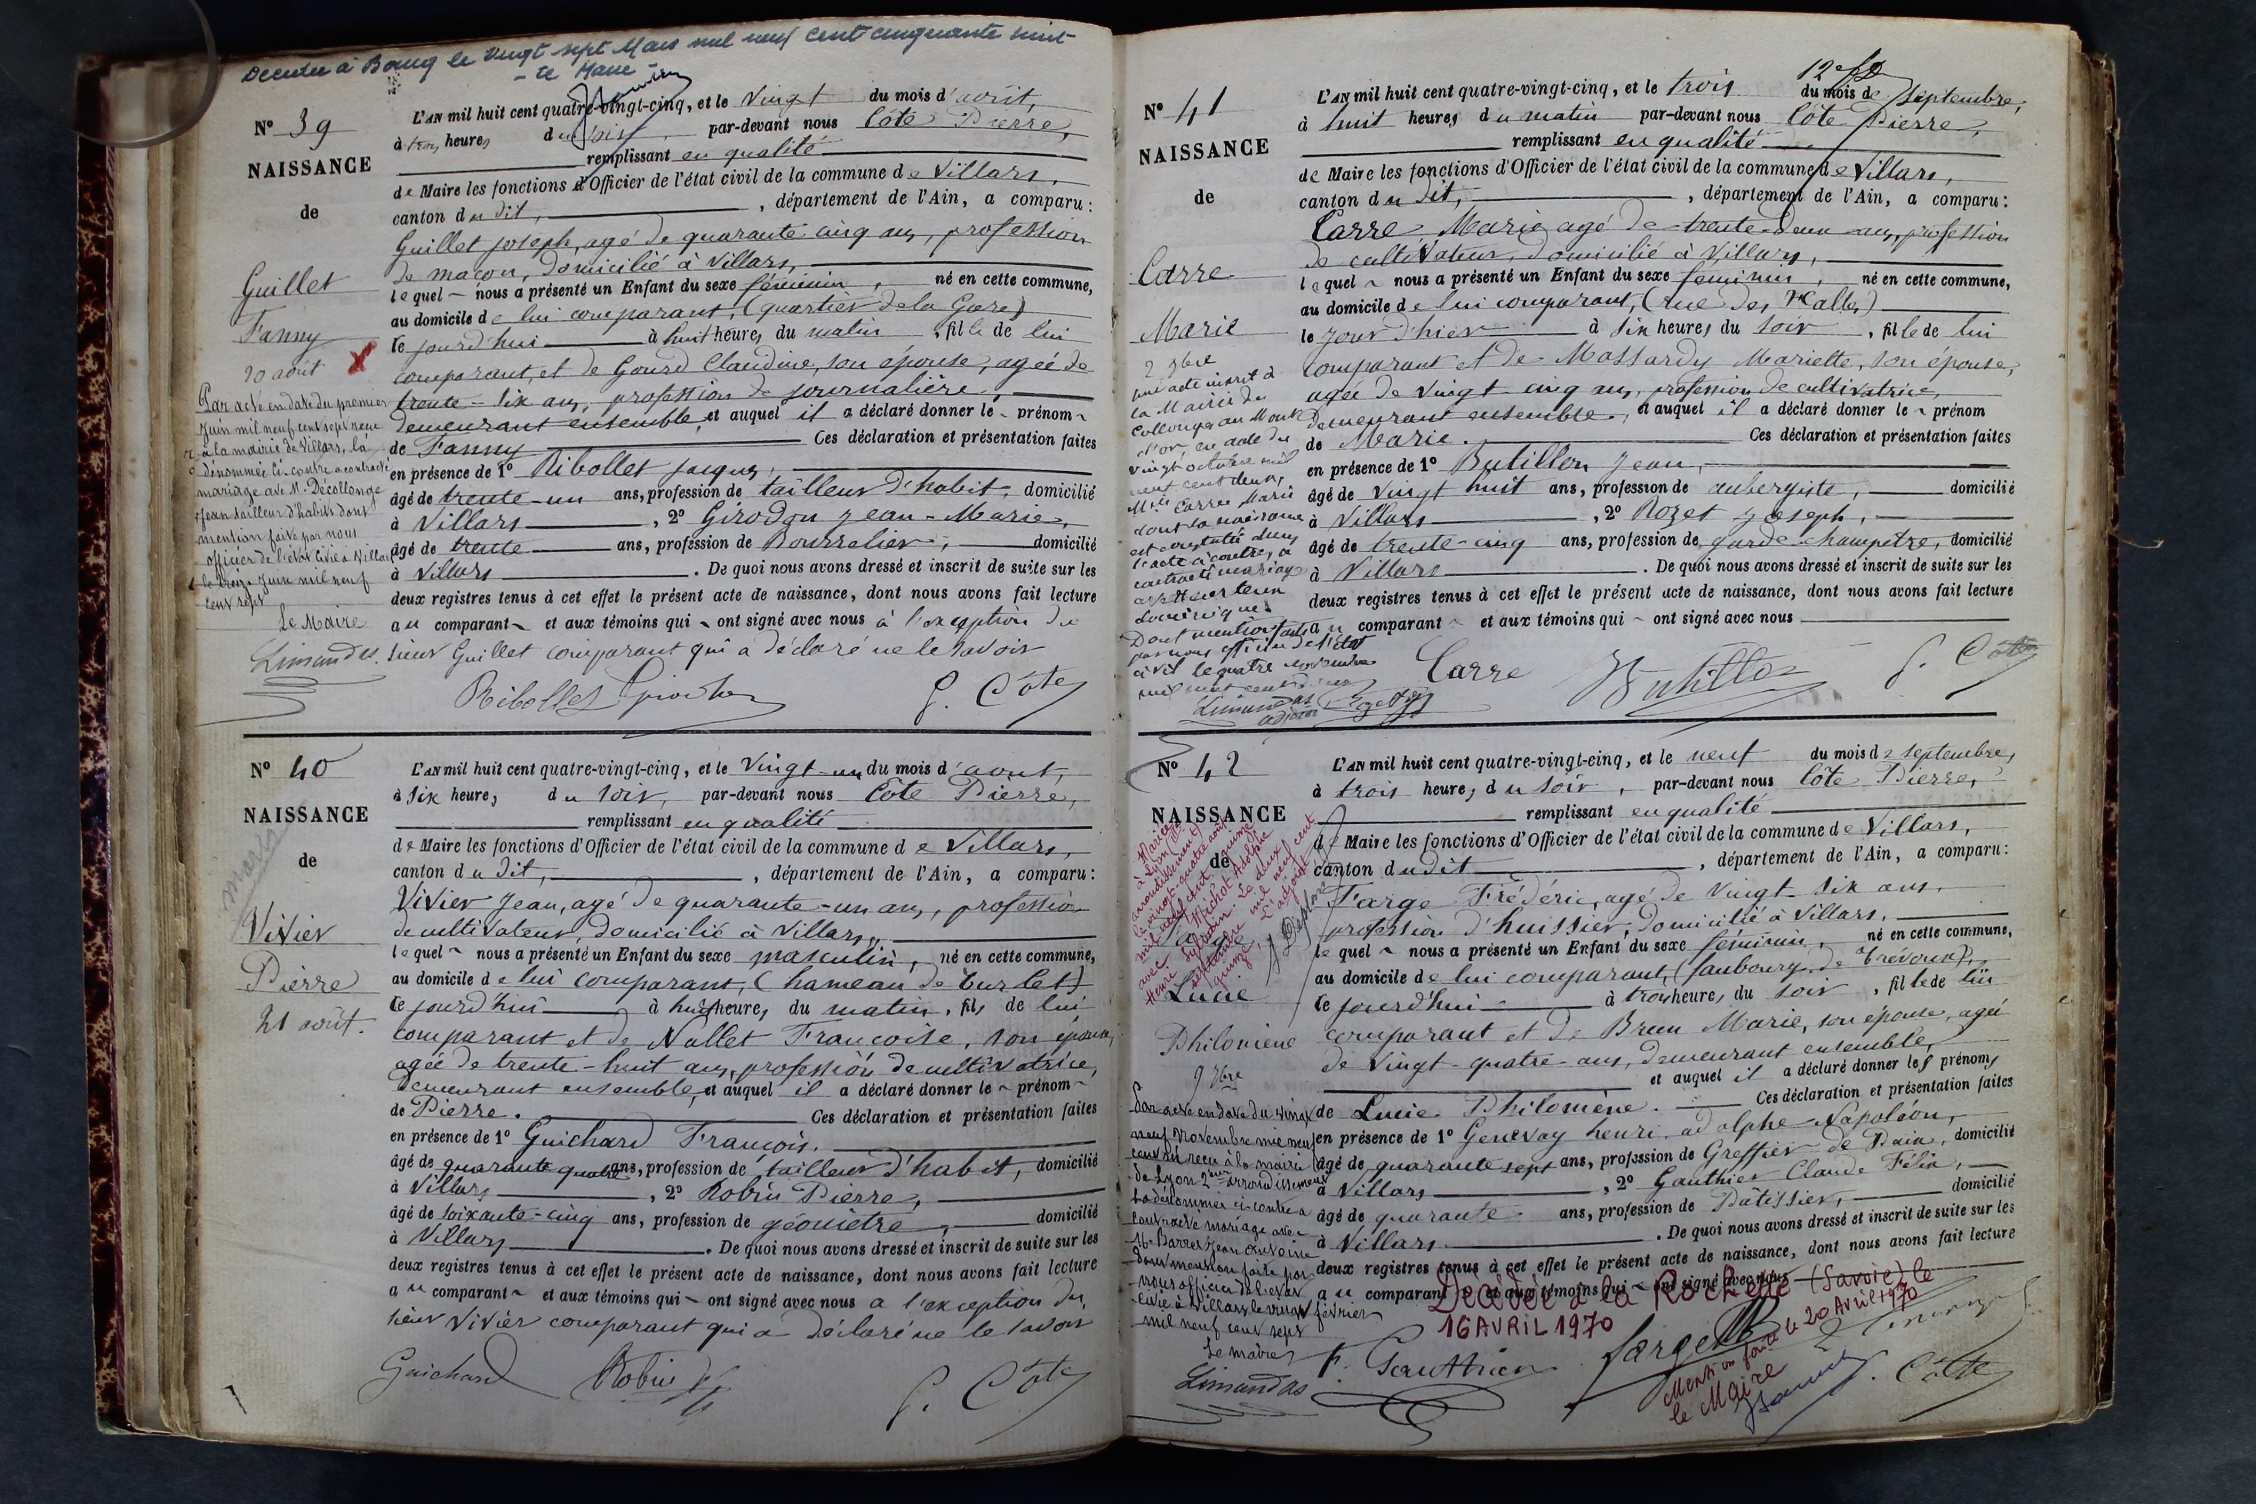 Décédée à Bourg le vingt sept Mars mil neuf cent cinquante huit
- le Maire -
N° 39
NAISSANCE
de
Guillet
Fanny
20 août
Par acte en date du premier
Juin mil neuf cent sept
à la mairie de Villars, la
dénommée ci-contre a contracté
mariage avec M. Décollonge
Jean tailleur d'habits dont
mention faite par nous
officier de l'état civil à Villars
le treize Juin mil neuf
cent sept
Le Maire
Limandas
L'AN mil huit cent quatre-vingt-cinq, et le vingt du mois d'août,
à trois heures du soir, par-devant nous Côte Pierre,
remplissant en qualité
de Maire les fonctions d'Officier de l'état civil de la commune de Villars,
canton du dit, département de l'Ain, a comparu :
Guillet joseph, agé de quarante cinq ans, profession
de maçon, domicilié à Villars,
lequel nous a présenté un Enfant du sexe féminin, né en cette commune,
au domicile de lui comparant, (quartier de la Gare)
le jourd'hui à huit heures du matin, fille de lui
comparant, et de Gourd Claudine, son épouse, agée de
trente-six ans, profession de journalière
demeurant ensemble, et auquel il a déclaré donner le prénom
de Fanny Ces déclaration et présentation faites
en présence de 1° Ribollet jacques,
âgé de trente-un ans, profession de tailleur d'habit, domicilié
à Villars, 2° Girodon jean-Marie,
âgé de trente ans, profession de Bourrelier, domicilié
à Villars. De quoi nous avons dressé et inscrit de suite sur les
deux registres tenus à cet effet le présent acte de naissance, dont nous avons fait lecture
au comparant et aux témoins qui ont signé avec nous à l'exception du
sieur Guillet comparant qui a déclaré ne le savoir
Ribollet Girodon P. Côte
N° 40
NAISSANCE
de
Vivier
Pierre
21 août.
L'AN mil huit cent quatre-vingt-cinq, et le vingt-un du mois d'août,
à six heures du soir, par-devant nous Côte Pierre,
remplissant en qualité
de Maire les fonctions d'Officier de l'état civil de la commune de Villars,
canton du dit, département de l'Ain, a comparu :
Vivier Jean, agé de quarante-un ans, profession
de cultivateur, domicilié à Villars,
lequel nous a présenté un Enfant du sexe masculin, né en cette commune,
au domicile de lui comparant, (hameau de Turlet)
le jourd'hui à huit heures du matin, fils de lui
comparant et de Nallet Françoise, son épouse,
agée de trente-huit ans, profession de cultivatrice,
demeurant ensemble, et auquel il a déclaré donner le prénom
de Pierre. Ces déclaration et présentation faites
en présence de 1° Guichard François.
âgé de quarante quatre ans, profession de tailleur d'habit, domicilié
à Villars, 2° Robin Pierre,
âgé de soixante-cinq ans, profession de géomètre, domicilié
à Villars. De quoi nous avons dressé et inscrit de suite sur les
deux registres tenus à cet effet le présent acte de naissance, dont nous avons fait lecture
au comparant et aux témoins qui ont signé avec nous a l'exception du
sieur Vivier comparant qui a déclaré ne le savoir
Guichard Robin P. Côte
N° 41
NAISSANCE
de
Carre
Marie
2 7bre
par acte inscrit à
la Mairie de
Collonges au Mont
d'or, en date du
vingt octobre mil
neuf cent deux,
Mlle Carre Marie
dont la naissance
est constatée dans
l'acte ci contre, a
contracté mariage
avec
Dominique.
Dont mention faite
par nous officier de l'état
civil le quatre novembre
mil neuf cent deux
Limandas
adjoint
L'AN mil huit cent quatre-vingt-cinq, et le trois du mois de septembre,
à huit heures du matin par-devant nous Côte Pierre,
remplissant en qualité
de Maire les fonctions d'Officier de l'état civil de la commune de Villars,
canton du dit, département de l'Ain, a comparu :
Carre Marie agé de trente-deux ans, profession
de cultivateur, domicilié à Villars,
lequel nous a présenté un Enfant du sexe féminin, né en cette commune,
au domicile de lui comparant, (rue des Halles)
le jour d'hier à six heures du soir, fille de lui
comparant et de Massardy Mariette, son épouse,
agée de vingt-cinq ans, profession de cultivatrice,
demeurant ensemble, et auquel il a déclaré donner le prénom
de Marie. Ces déclaration et présentation faites
en présence de 1° Butillon Jean,
âgé de vingt huit ans, profession de aubergiste, domicilié
à Villars, 2° Rozet joseph,
âgé de trente-cinq ans, profession de garde-champêtre, domicilié
à Villars. De quoi nous avons dressé et inscrit de suite sur les
deux registres tenus à cet effet le présent acte de naissance, dont nous avons fait lecture
au comparant et aux témoins qui ont signé avec nous
Carre Butillon P. Côte
Rozet
N° 42
NAISSANCE
de
Mariée
à Lyon
arrondissement
le vingt-quatre août
mil neuf cent quinze
avec Michot Adolphe
Henri Sylvain. Le deux
septembre mil neuf cent
quinze. L'adjoint
Farge
Lucie
Philomène
9 7bre
Par acte en date du vingt
neuf novembre mil neuf
cent reçu à la mairie
de Lyon 2me arrondissement
la dénommée ci-contre a
contracté mariage avec
Mr Barret Jean Antoine
dont mention faite par
nous officier de l'état
civil à Villars le vingt février
mil neuf cent sept
Le maire
Limandas
L'AN mil huit cent quatre-vingt-cinq, et le neuf du mois de septembre,
à trois heures du soir, par-devant nous Côte Pierre,
remplissant en qualité
de Maire les fonctions d'Officier de l'état civil de la commune de Villars,
canton du dit, département de l'Ain, a comparu :
Farge Frédéric, agé de vingt-six ans.
profession d'huissier, domicilié à Villars.
lequel nous a présenté un Enfant du sexe féminin, né en cette commune,
au domicile de lui comparant, (faubourg de Trévoux),
le jourd'hui à trois heures du soir, fille de lui
comparant et de Brun Marie, son épouse, agée
de vingt-quatre ans, demeurant ensemble,
et auquel il a déclaré donner les prénoms
de Lucie Philomène. Ces déclaration et présentation faites
en présence de 1° Genevay henri adolphe Napoléon,
âgé de quarante sept ans, profession de Greffier de Paix, domicilié
à Villars, 2° Gauthier Claude Félix,
âgé de quarante ans, profession de Pâtissier, domicilié
à Villars. De quoi nous avons dressé et inscrit de suite sur les
deux registres tenus à cet effet le présent acte de naissance, dont nous avons fait lecture
au comparant et aux témoins qui ont signé avec nous
Décédée à la Rochette (Savoie) le
16 AVRIL 1970
F. Gauthier Farge P. Côte
Mention faite le 20 Avril 1970
le Maire